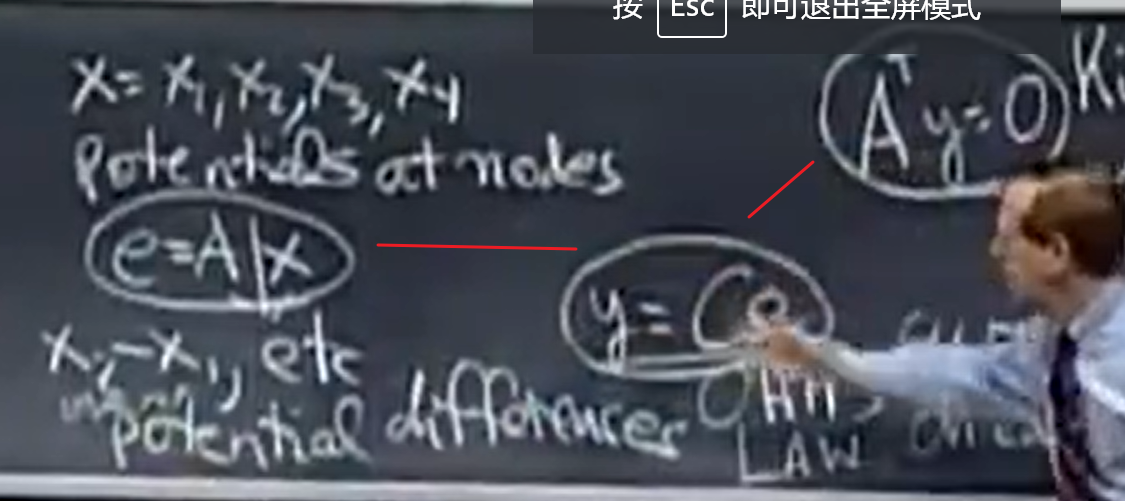 按 Esc 即可退出全屏模式
x = x₁, x₂, x₃, x₄
potentials at nodes
e = Ax
x₂-x₁, etc
potential differences
Aᵀy = 0
y = Ce
OHM'S
LAW